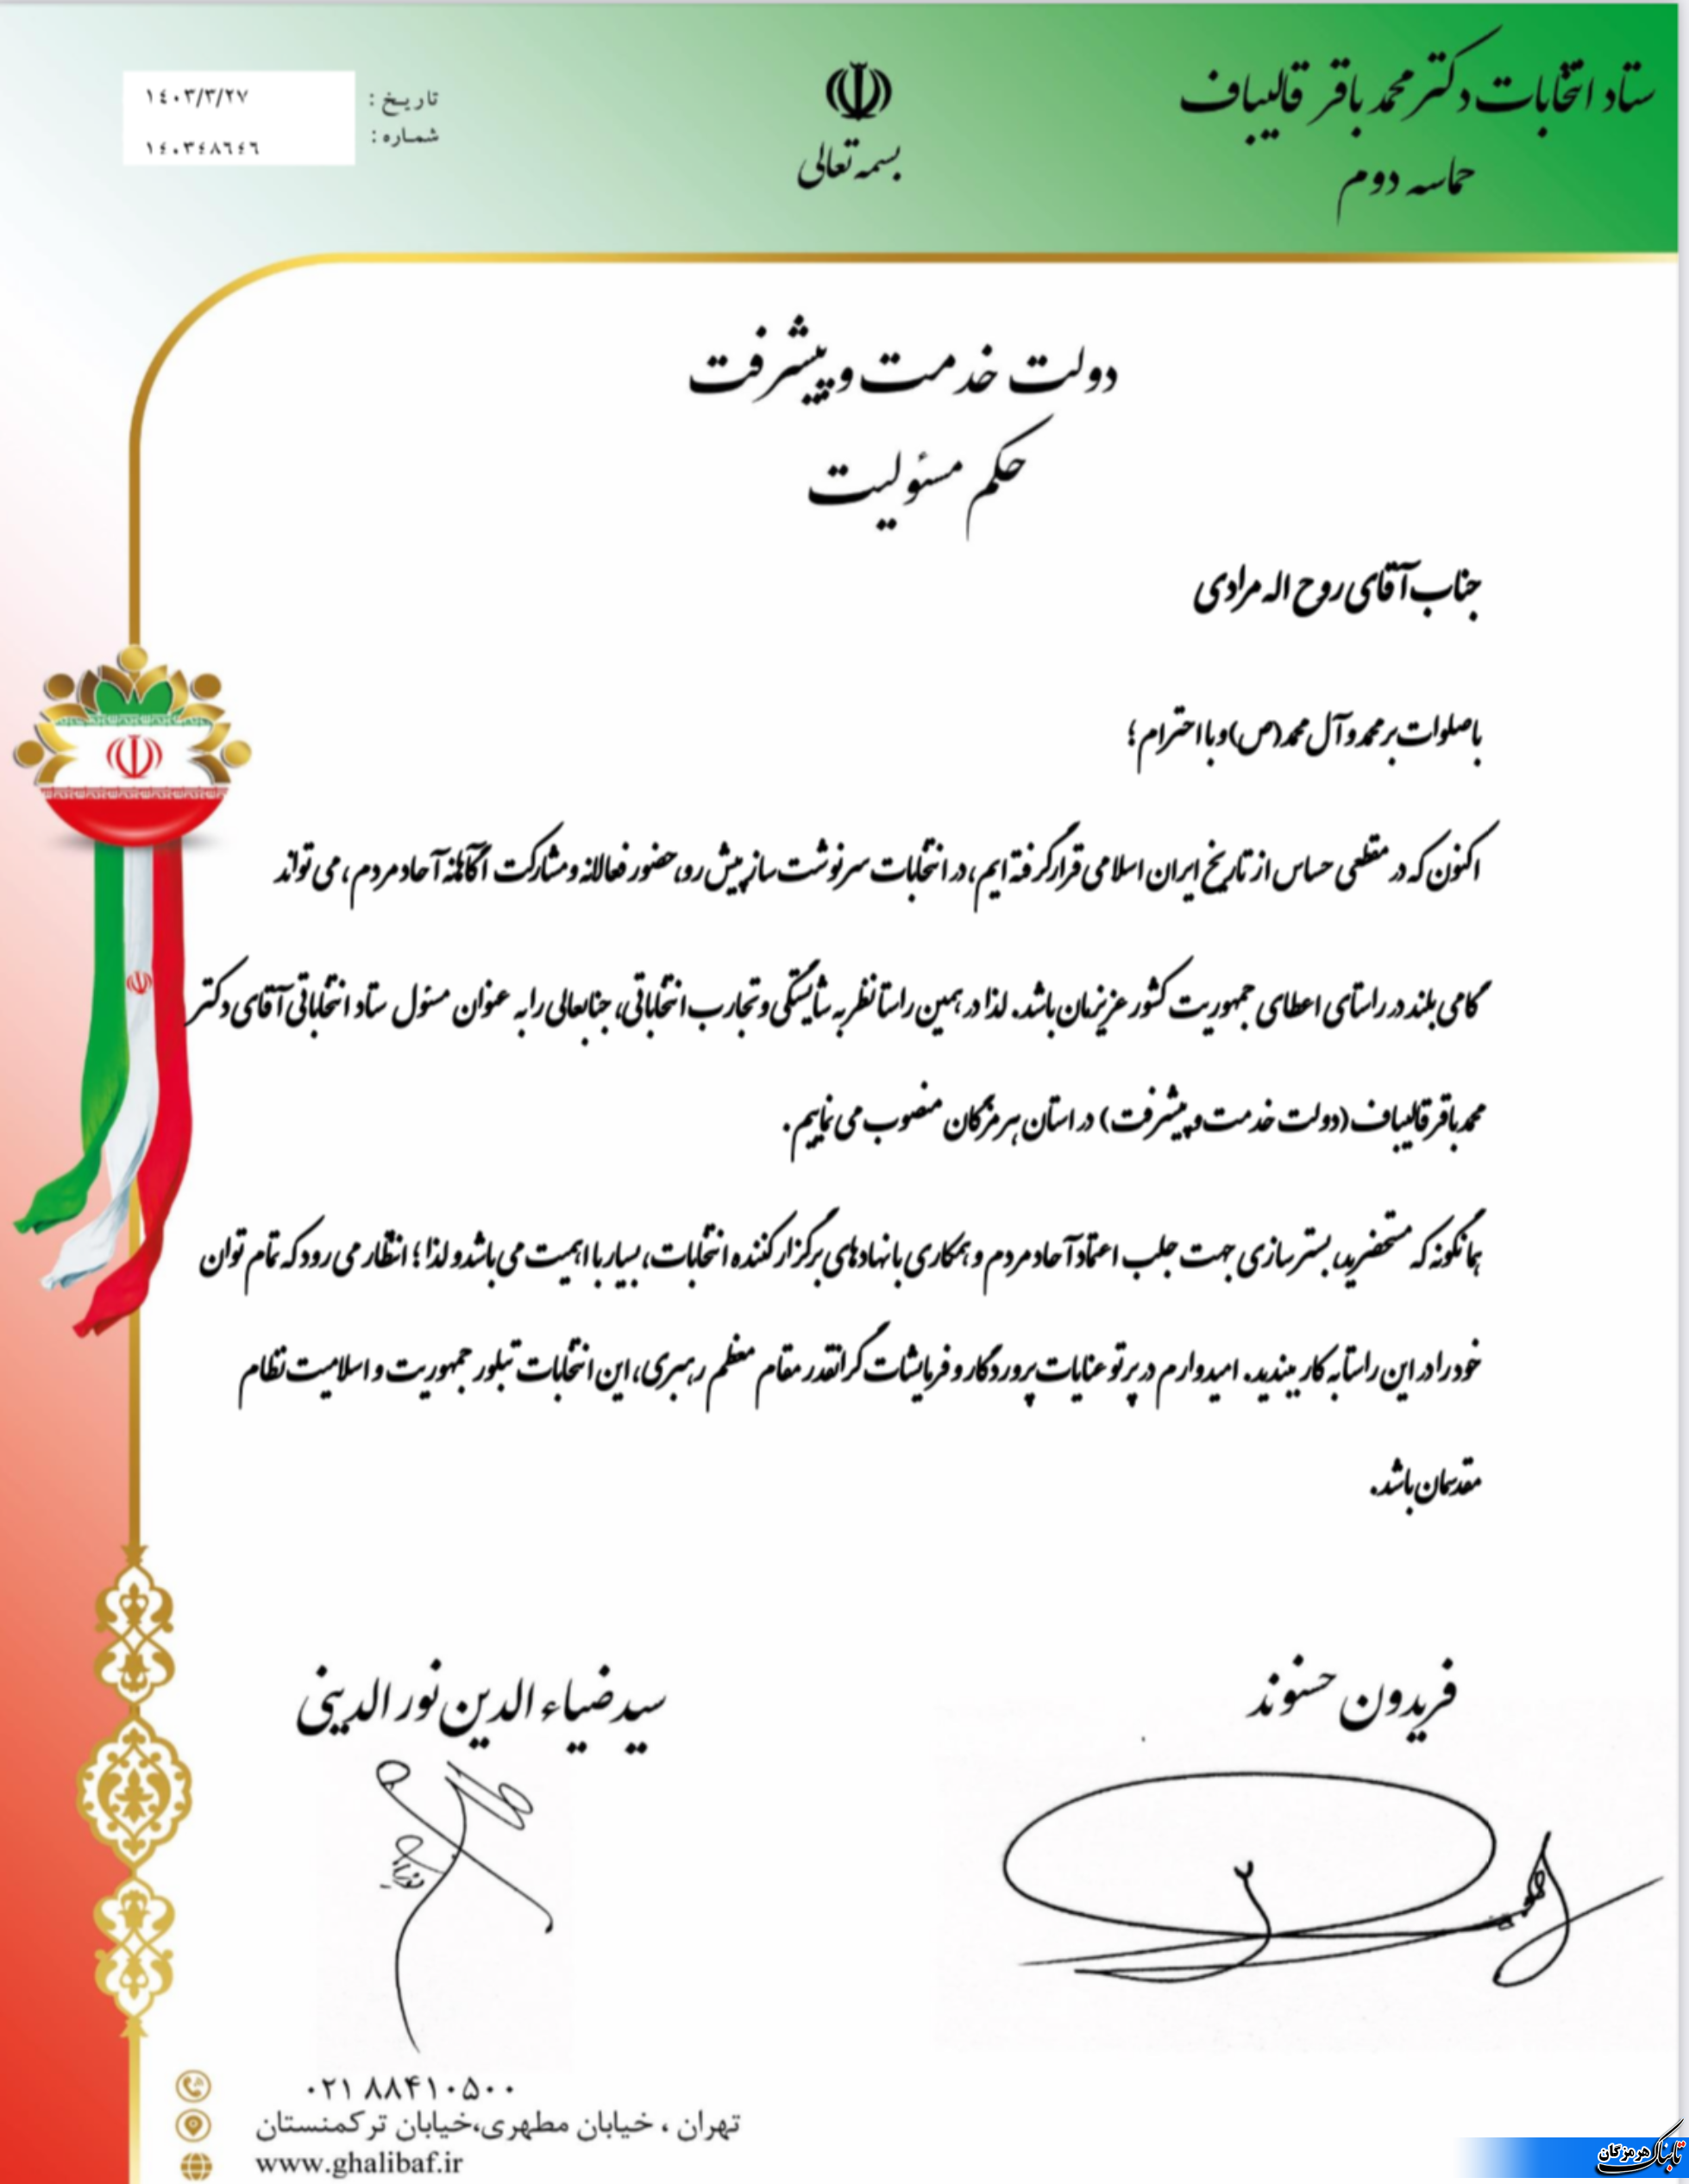 ستاد انتخابات دکتر محمد باقر قالیباف
حماسه دوم
بسمه تعالی
تاریخ : ١٤٠٣/٣/٢٧
شماره : ١٤٠٣٤٨٦٤٦
دولت خدمت و پیشرفت
حکم مسئولیت
جناب آقای روح اله مرادی
با صلوات بر محمد و آل محمد (ص) و با احترام ؛
اکنون که در مقطعی حساس از تاریخ ایران اسلامی قرار گرفته ایم، در انتخابات سرنوشت ساز پیش رو، حضور فعالانه و مشارکت آگاهانه آحاد مردم ، می تواند
گامی بلند در راستای اعطای جمهوریت کشور عزیزمان باشد. لذا در همین راستا نظر به شایستگی و تجارب انتخاباتی، جنابعالی را به عنوان مسئول ستاد انتخاباتی آقای دکتر
محمد باقر قالیباف (دولت خدمت و پیشرفت) در استان هرمزگان منصوب می نماییم.
همانگونه که مستحضرید، بستر سازی جهت جلب اعتماد آحاد مردم و همکاری با نهادهای برگزار کننده انتخابات، بسیار با اهمیت می باشد و لذا ؛ انتظار می رود که تمام توان
خود را در این راستا به کار ببندید. امیدوارم در پرتو عنایات پروردگار و فرمایشات گرانقدر مقام معظم رهبری، این انتخابات تبلور جمهوریت و اسلامیت نظام
مقدسمان باشد.
فریدون حسنوند
سید ضیاء الدین نور الدینی
۰۲۱ ۸۸۴۱۰۵۰۰
تهران ، خیابان مطهری،خیابان ترکمنستان
www.ghalibaf.ir
تابناک هرمزگان